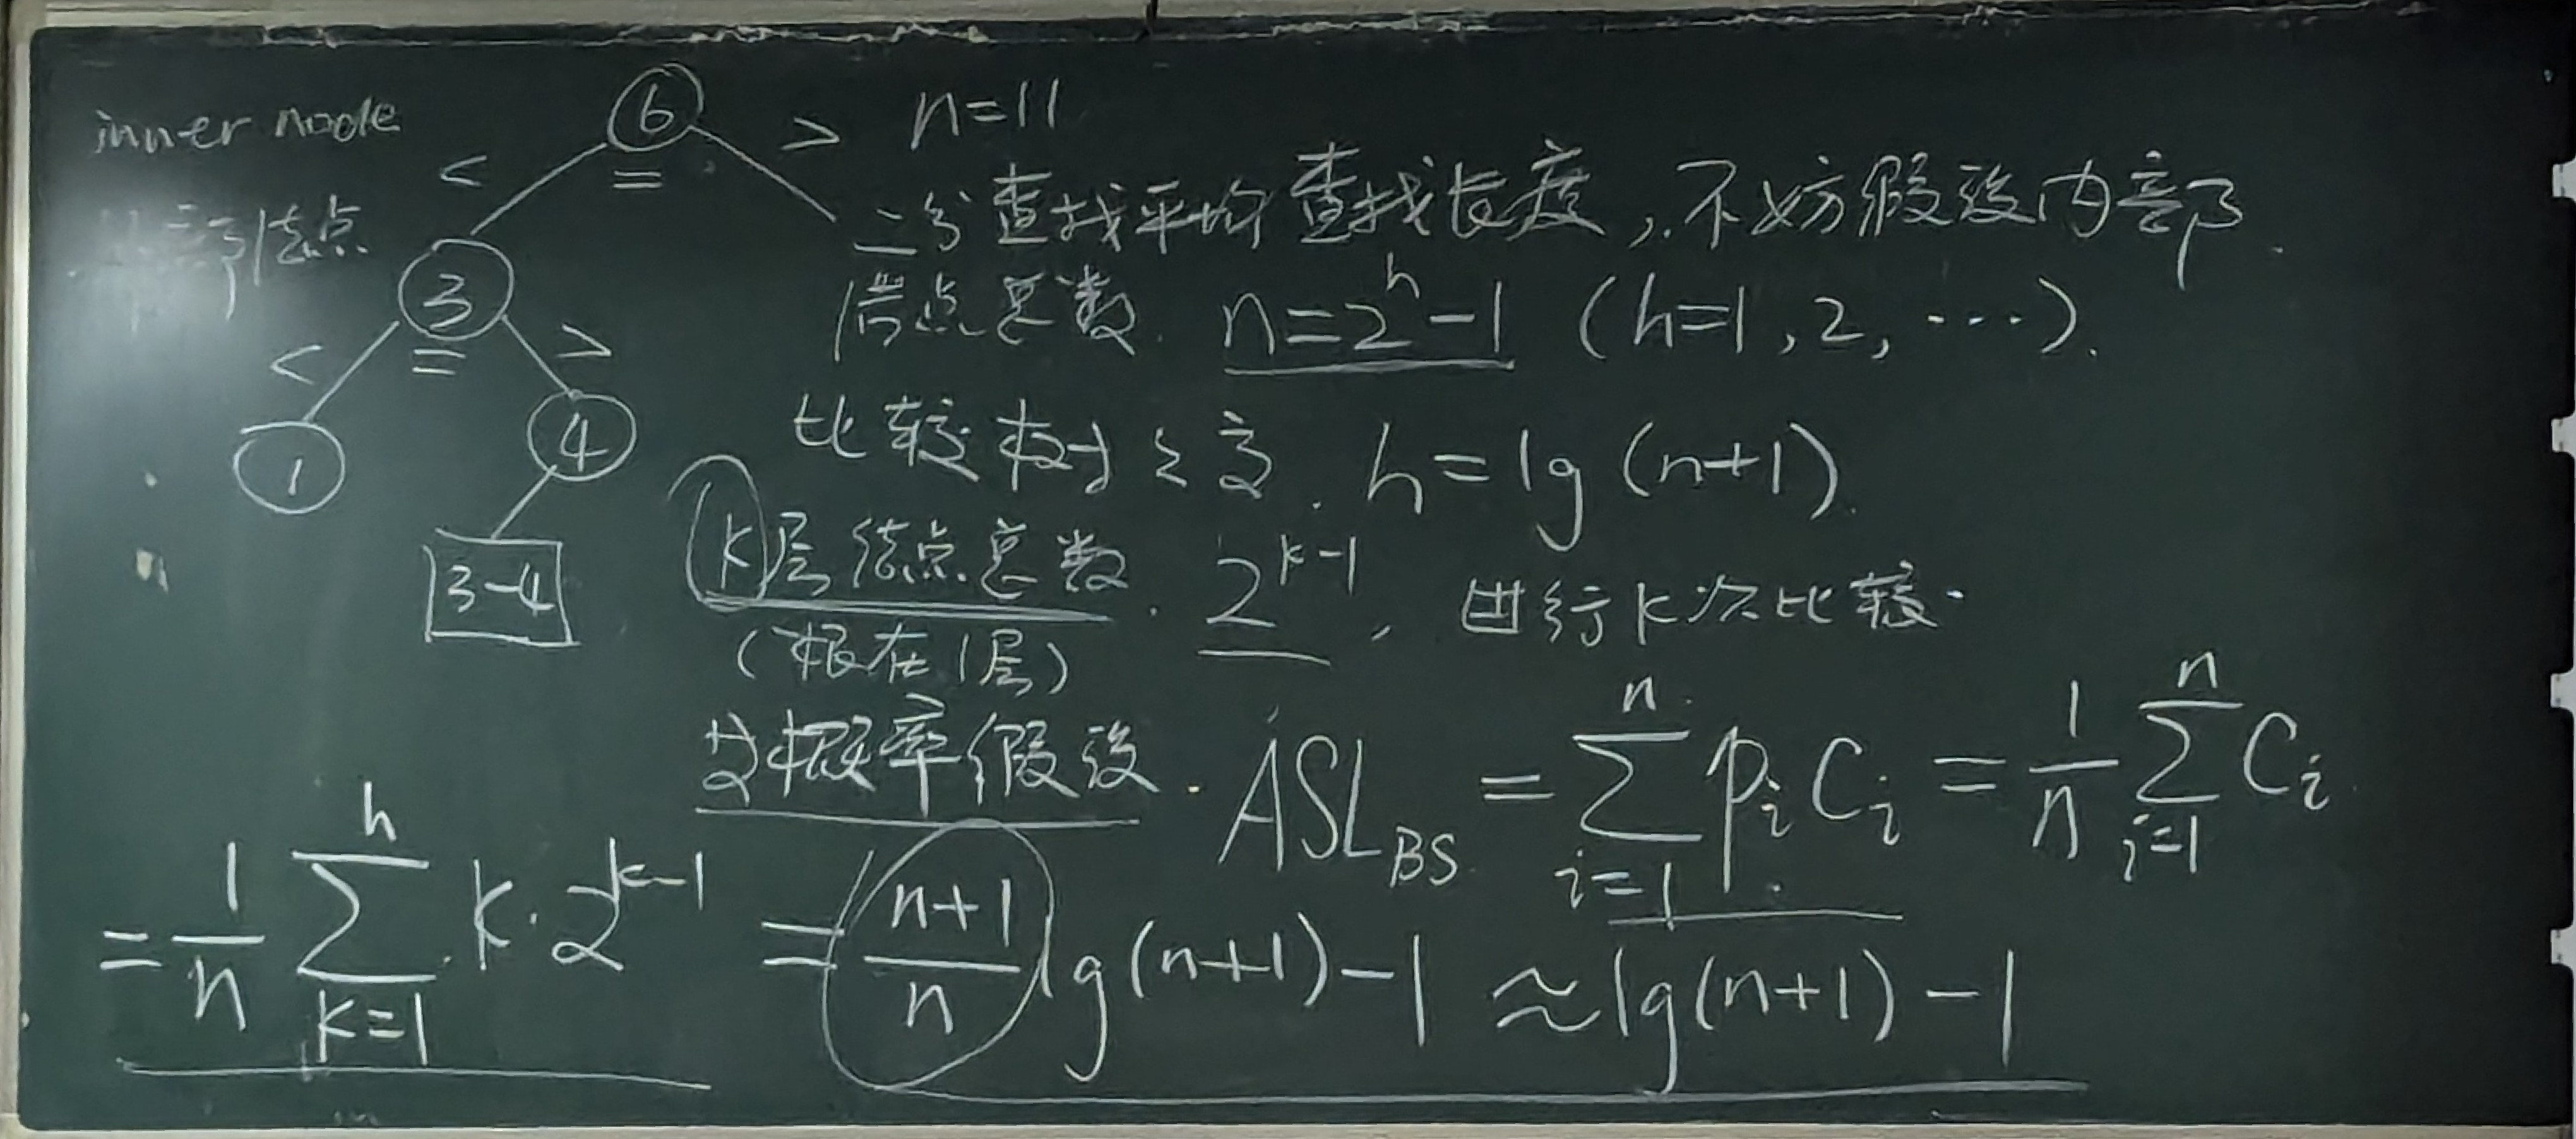 inner node
内部结点
6
< = >
3
< = >
1
4
3-4
n=11
二分查找平均查找长度,不妨假设内部
结点总数 n=2^h-1 (h=1,2,···).
比较树高 h=lg(n+1)
k层结点总数 2^{k-1}, 进行k次比较.
(根在1层)
等概率假设. ASL_{BS} = \sum_{i=1}^{n} p_i C_i = \frac{1}{n} \sum_{i=1}^{n} C_i
= \frac{1}{n} \sum_{k=1}^{h} k·2^{k-1} = \frac{n+1}{n} lg(n+1)-1 ≈ lg(n+1)-1